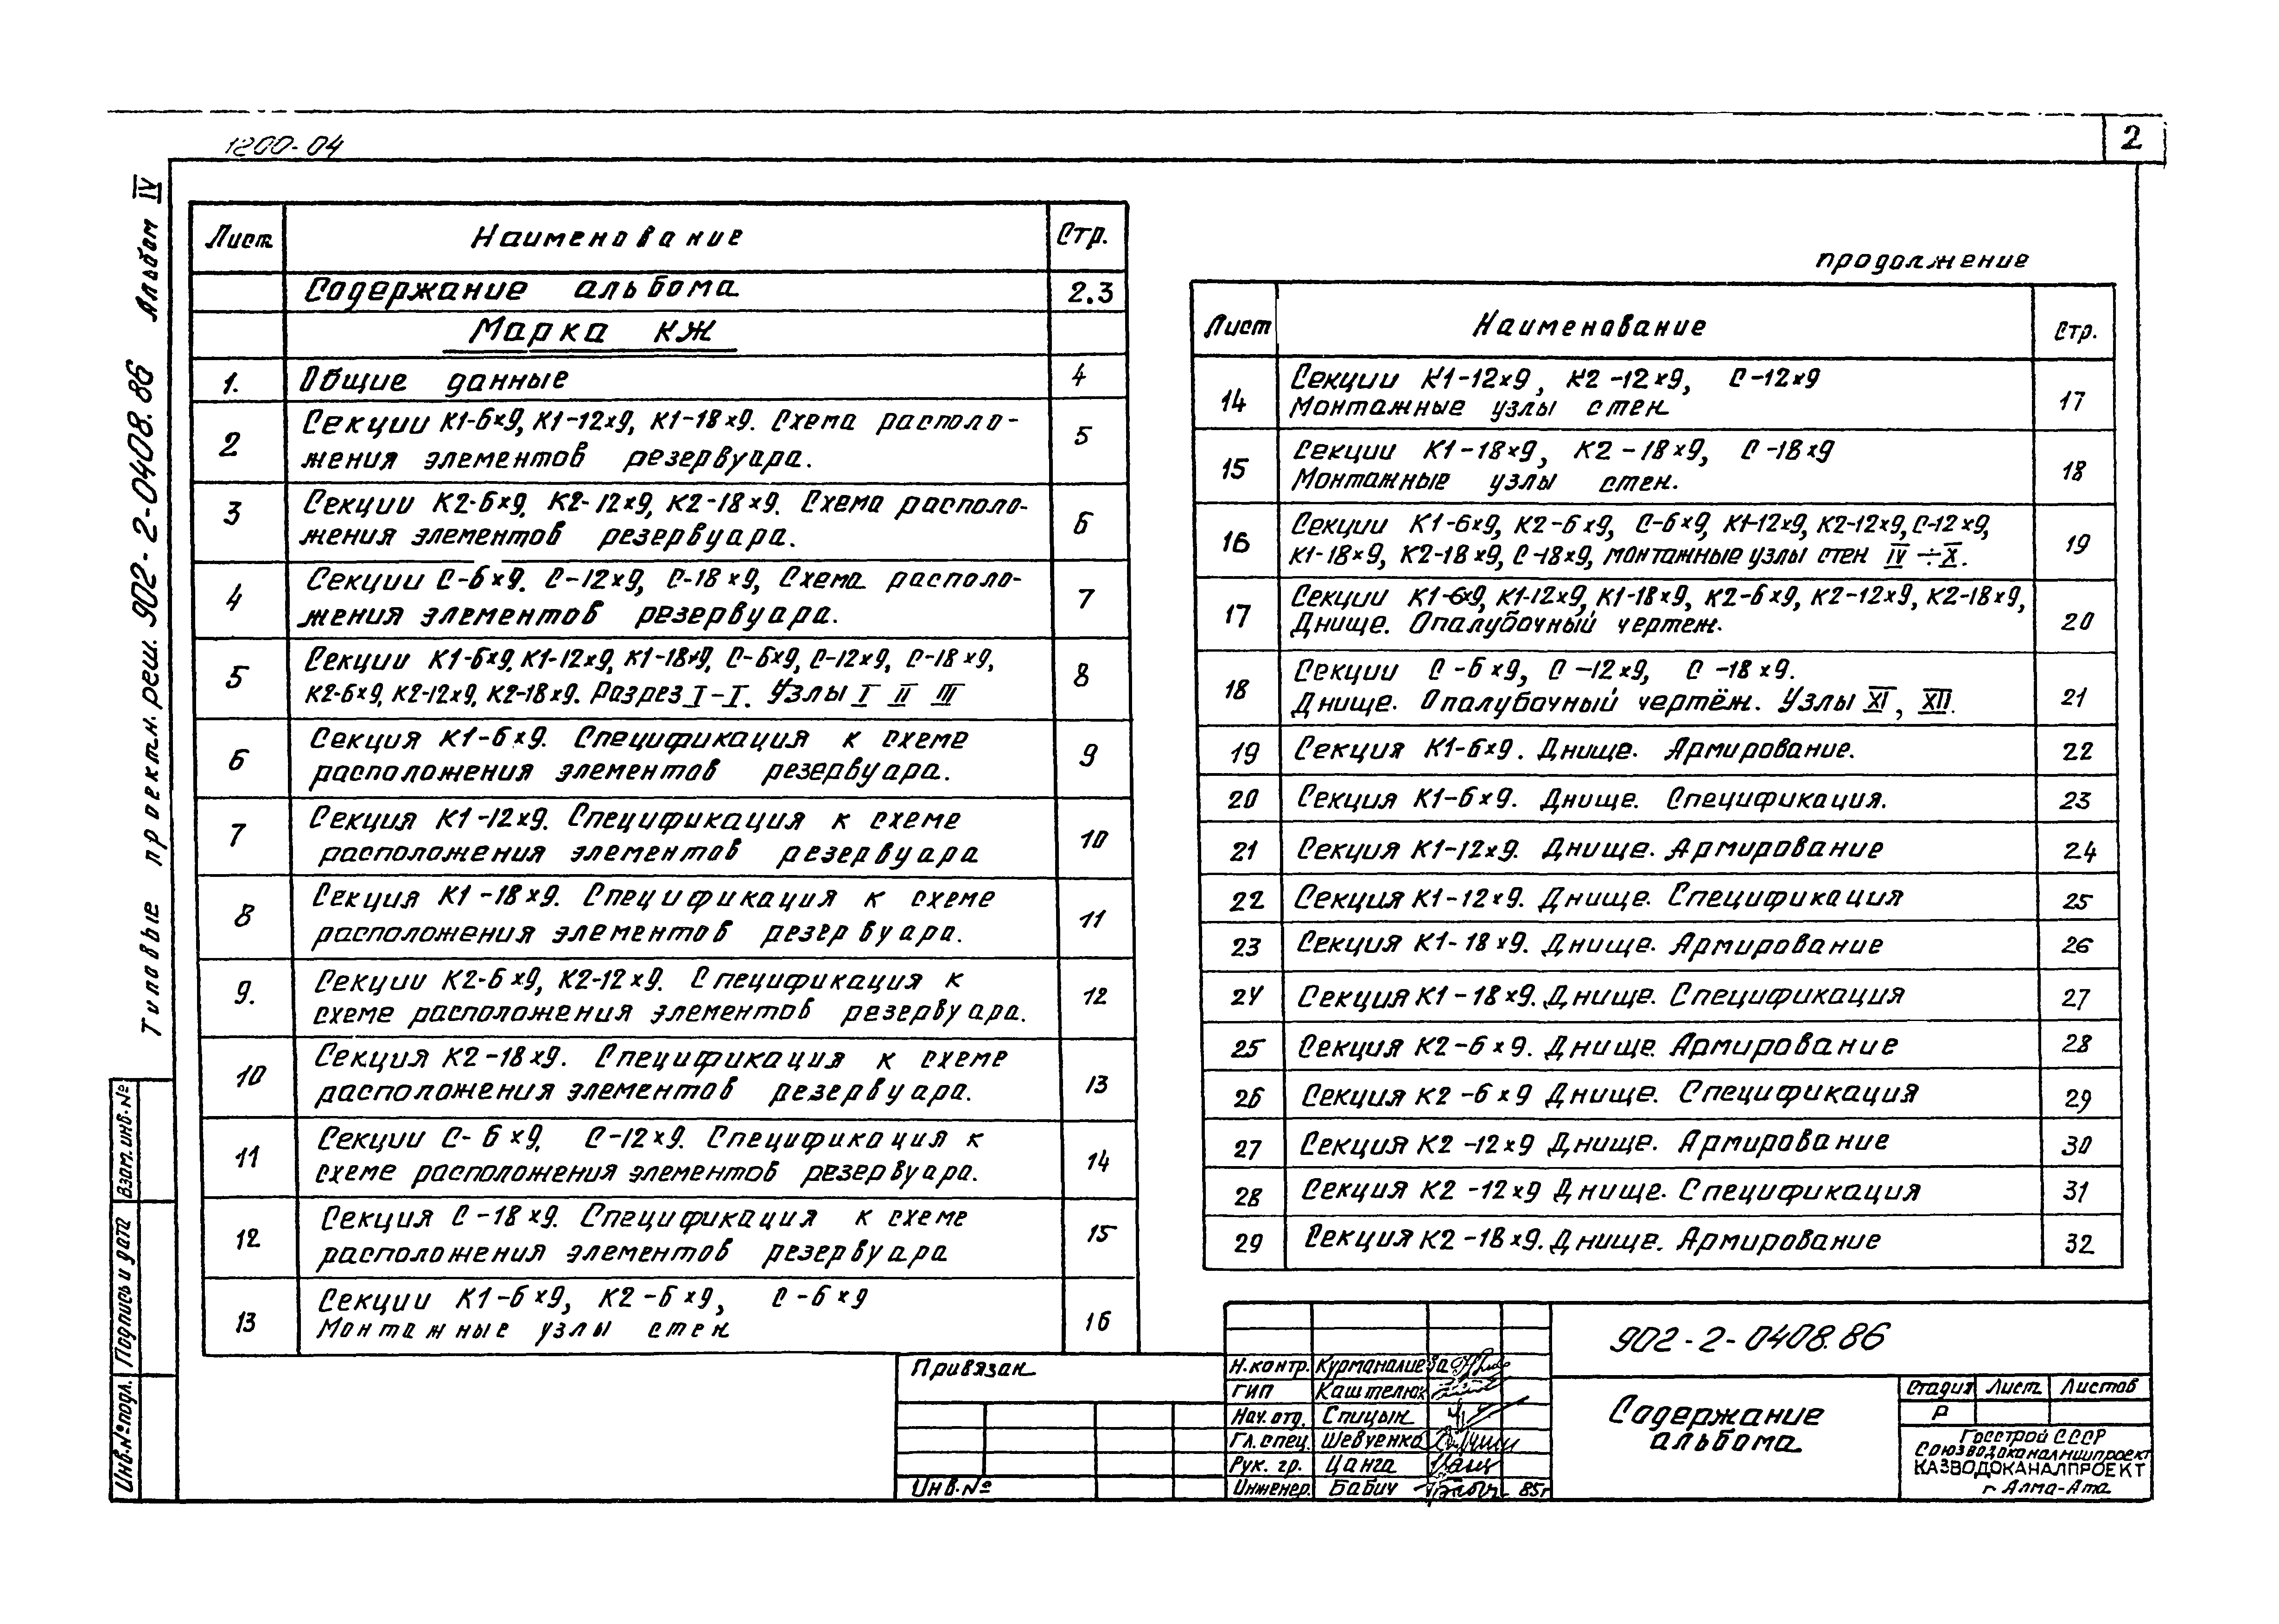 1200-04
2
Типовые проектн. реш. 902-2-0408.86 Альбом IV
Лист Наименование Стр.
Содержание альбома 2.3
Марка КЖ
1. Общие данные 4
2 Секции К1-6х9, К1-12х9, К1-18х9. Схема располо-
жения элементов резервуара. 5
3 Секции К2-6х9, К2-12х9, К2-18х9. Схема располо-
жения элементов резервуара. 6
4 Секции С-6х9. С-12х9, С-18х9, Схема располо-
жения элементов резервуара. 7
5 Секции К1-6х9, К1-12х9, К1-18х9, С-6х9, С-12х9, С-18х9,
К2-6х9, К2-12х9, К2-18х9. Разрез I-I. Узлы I II III 8
6 Секция К1-6х9. Спецификация к схеме
расположения элементов резервуара. 9
7 Секция К1-12х9. Спецификация к схеме
расположения элементов резервуара 10
8 Секция К1-18х9. Спецификация к схеме
расположения элементов резервуара. 11
9. Секции К2-6х9, К2-12х9. Спецификация к
схеме расположения элементов резервуара. 12
10 Секция К2-18х9. Спецификация к схеме
расположения элементов резервуара. 13
11 Секции С-6х9, С-12х9. Спецификация к
схеме расположения элементов резервуара. 14
12 Секция С-18х9. Спецификация к схеме
расположения элементов резервуара 15
13 Секции К1-6х9, К2-6х9, С-6х9
Монтажные узлы стен 16
продолжение
Лист Наименование Стр.
14 Секции К1-12х9, К2-12х9, С-12х9
Монтажные узлы стен 17
15 Секции К1-18х9, К2-18х9, С-18х9
Монтажные узлы стен. 18
16 Секции К1-6х9, К2-6х9, С-6х9, К1-12х9, К2-12х9, С-12х9,
К1-18х9, К2-18х9, С-18х9, монтажные узлы стен IV÷X. 19
17 Секции К1-6х9, К1-12х9, К1-18х9, К2-6х9, К2-12х9, К2-18х9,
Днище. Опалубочный чертеж. 20
18 Секции С-6х9, С-12х9, С-18х9.
Днище. Опалубочный чертёж. Узлы XI, XII. 21
19 Секция К1-6х9. Днище. Армирование. 22
20 Секция К1-6х9. Днище. Спецификация. 23
21 Секция К1-12х9. Днище. Армирование 24
22 Секция К1-12х9. Днище. Спецификация 25
23 Секция К1-18х9. Днище. Армирование 26
24 Секция К1-18х9. Днище. Спецификация 27
25 Секция К2-6х9. Днище. Армирование 28
26 Секция К2-6х9 Днище. Спецификация 29
27 Секция К2-12х9 Днище. Армирование 30
28 Секция К2-12х9 Днище. Спецификация 31
29 Секция К2-18х9. Днище. Армирование 32
Инв.№подл. Подпись и дата Взам.инв.№
Привязан
Инв.№
Н.контр. Курманалиева
ГИП Каштелюк
Нач. отд. Спицын
Гл. спец. Шевченко
Рук. гр. Цанга
Инженер. Бабич 85г
902-2-0408.86
Содержание
альбома
Стадия Лист Листов
Р
Госстрой СССР
Союзводоканалниипроект
КАЗВОДОКАНАЛПРОЕКТ
г Алма-Ата